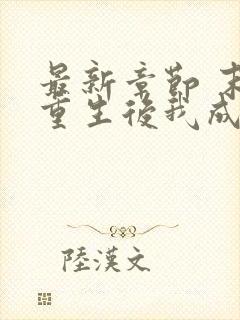 最新章節 末
重生後我成
陸漢文